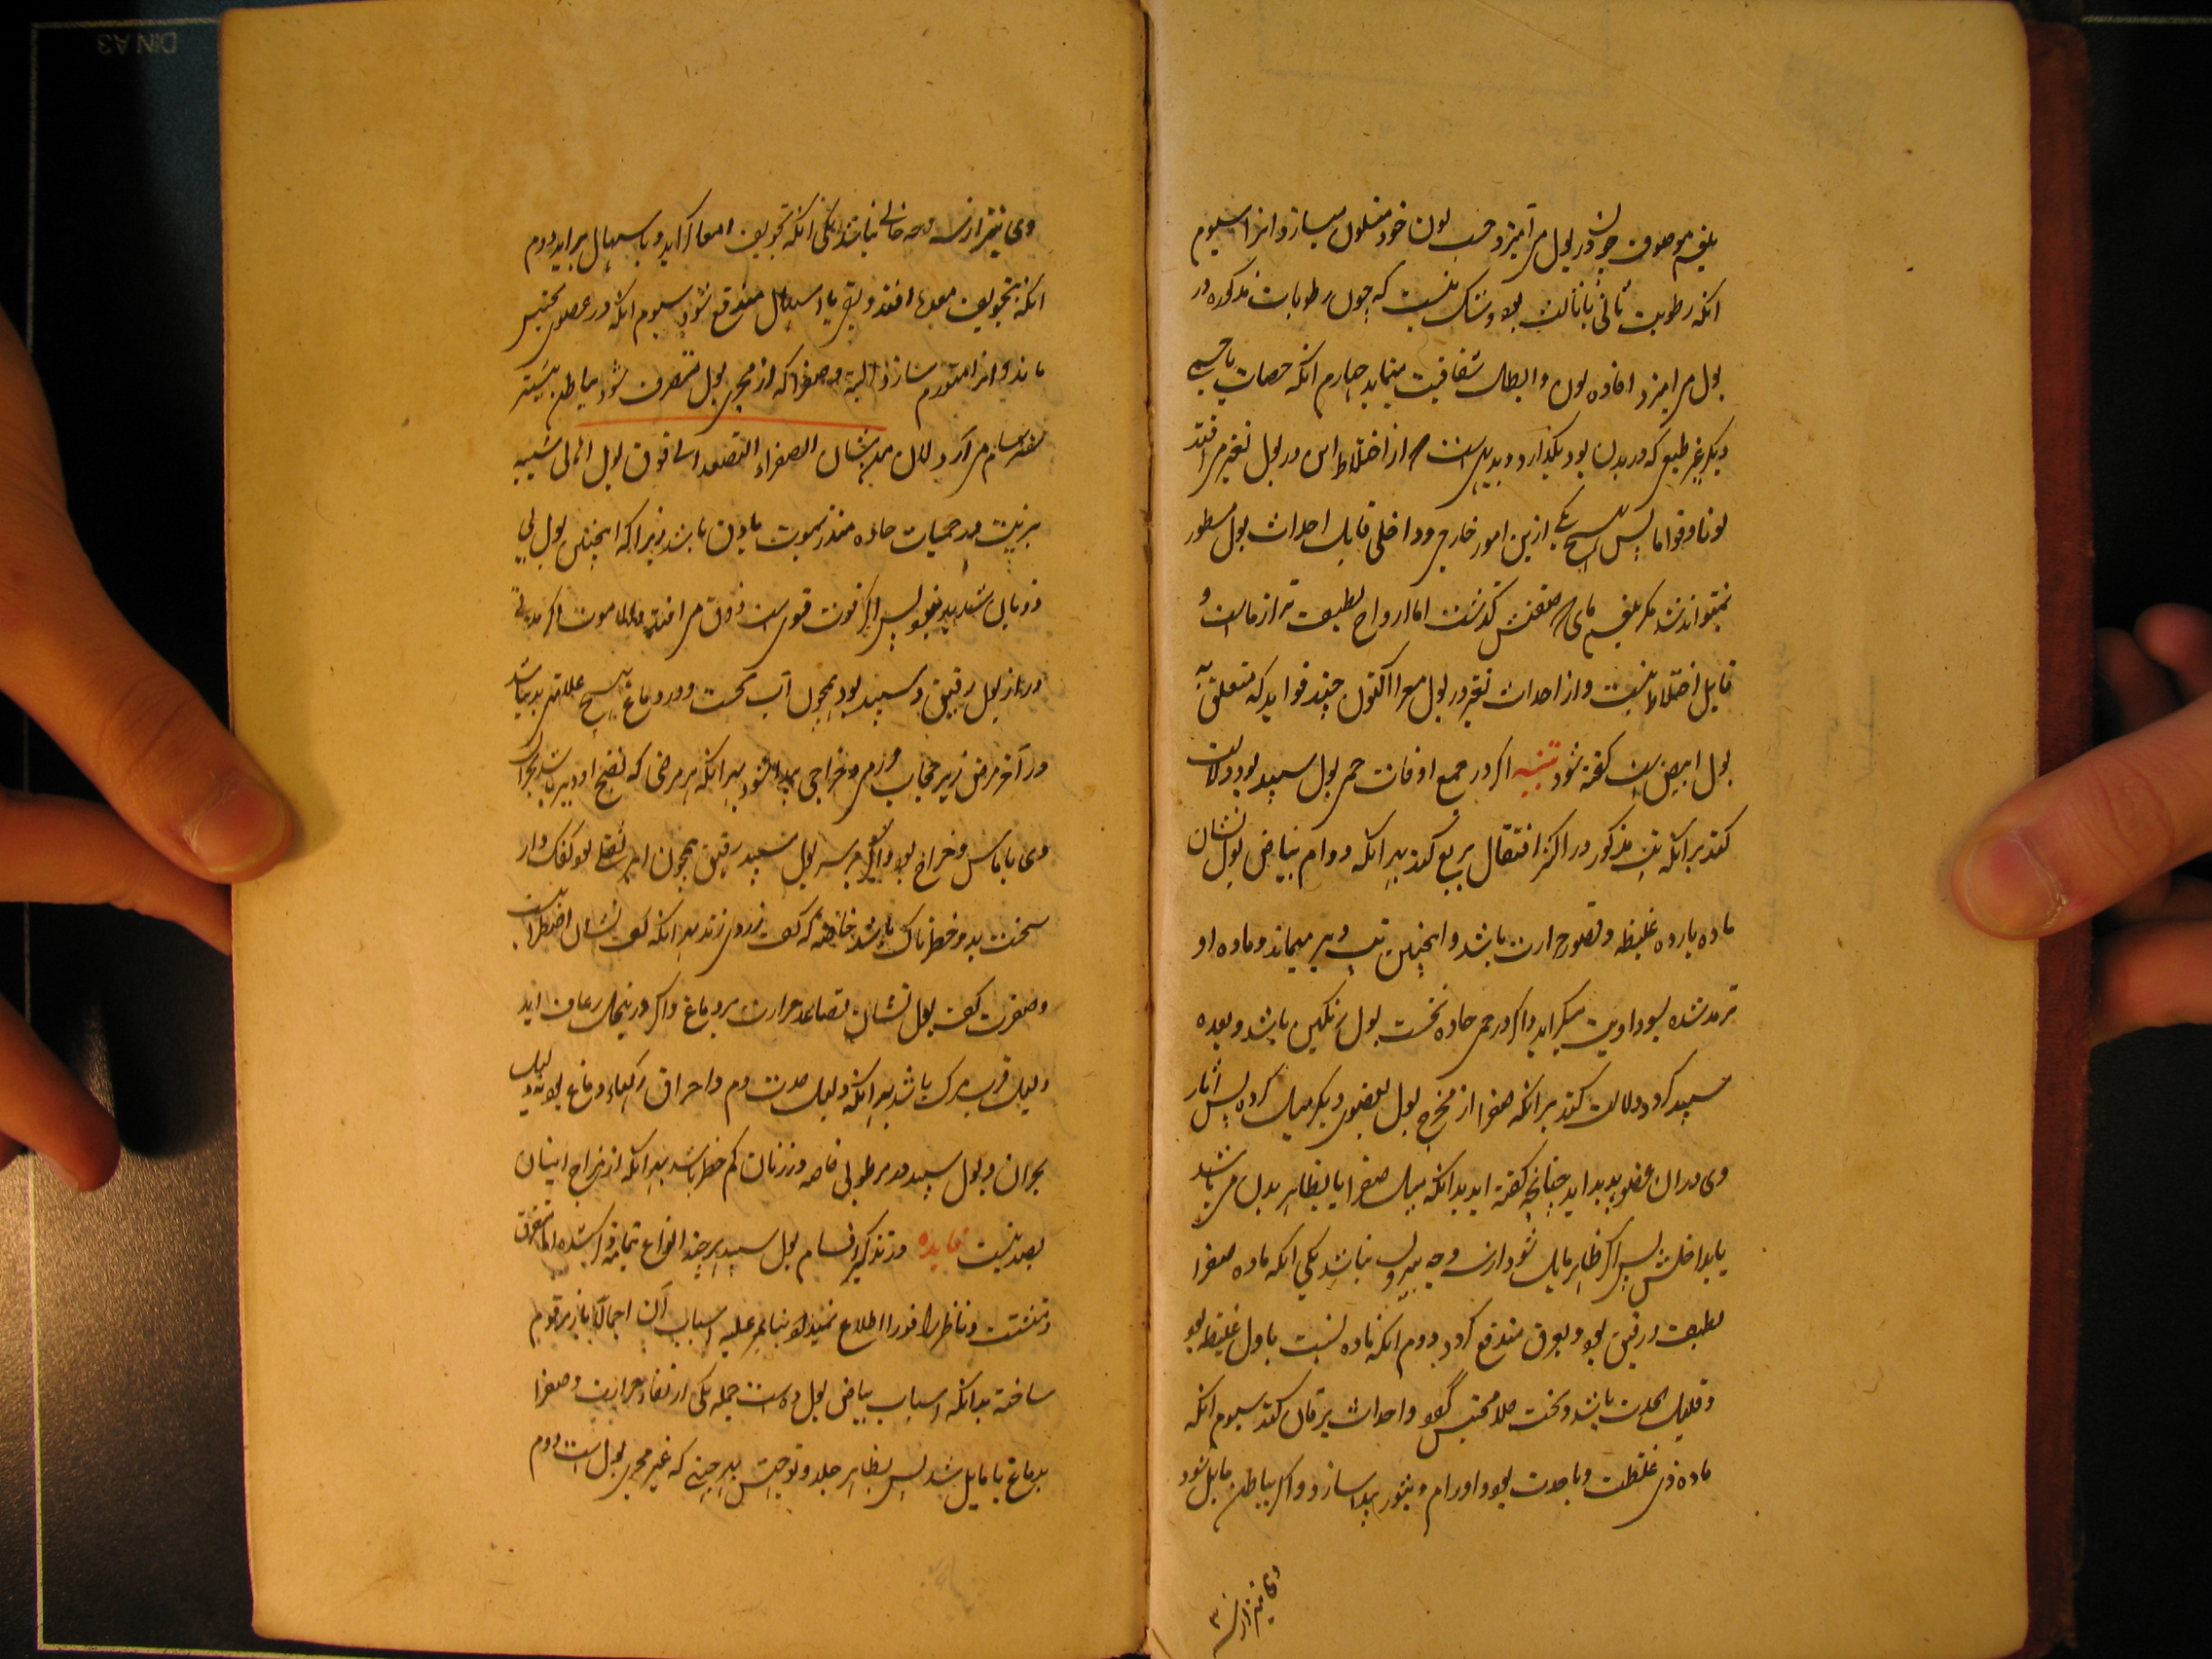 بلغم موصوف چون در بول می آمیزد حسب لون خود متلون میسازد و انرا سیوم
انکه رطوبت ثانی یا ثالث بود و شک نیست که چون رطوبات مذکوره در
بول می امیزد افاده لون و ابطال شفافیت مینماید چهارم انکه حصات یا جسمی
دیکر غیر طبیعی که در بدن بود بکذارد و بدیهی است که از اختلاط اس در بول تغیر می افتد
لونا و قواما پس هیچ یکی ازین امور خارجی و داخلی قابل احداث بول مسطور
نمیتواند شد مکر بلغم مای که صفتش کذشت اما ارواح لطیف تر از مااست و
قابل اختلاط نیست و از احداث تغیر در بول معرا اکنون چند فواید که متعلق به
بول ابیض است کفته شود تنبیه اکر در جمیع اوقات حمی بول سپید بود دلالت
کند برانکه تب مذکور در اکثر انتقال بربع کند بهر انکه دوام بیاض بول نشان
ماده بارده غلیظه و قصور حرارت باشد و اینچنین تب دیر میماند و ماده او
ترمد شده بسوداویت میکراید و اکر در حمی حاده نخست بول رنکین باشد و بعده
سپید کردد دلالت کند برانکه صفرا از مخرج بول بعضوی دیکر میل کرده پس اثار
وی دران عضو پدید اید چنانچه کفته اید بدانکه میل صفرا یا بظاهر بدن می باشد
یا بداخلش پس اکر بظاهر مایل شود از سه وجه بیرون نباشد یکی انکه ماده صفرا
لطیف و رقیق بود و بعرق مندفع کردد دوم انکه ماده نسبت باول غلیظ بود
و قلیل الحدت باشد و تحت جلد محتبس کردد و احداث یرقان کند سیوم انکه
ماده ذی غلظت و با حدت بود و اورام و بثور پیدا سازد و اکر بباطن مایل شود
وی نیز از سه
وی نیز از سه وجه خالی نباشد یکی انکه بتجویف امعا کراید و باسهال براید دوم
انکه بتجویف معده افتد و بقی یا اسهال مندفع شود سیوم انکه در عضوی محتبس
ماند و انرا متورم سازد البته و صفرا که از مجری بول منصرف شود بباطن بیشتر
سرسام می آرد لان من شان الصفراء التصعد الی فوق بول ابیض شبیه
بزیت در حمیات حاده منذر بموت یا دق باشد زیرا که اینچنین بول بی
ذوبان شدید نبود پس اکر قوت قوی است در دق می افتد و الا موت اکر مدتی
دراز بول رقیق و سپید بود همچون آب بحت و در دماغ هیچ علامتی بد نباشد
در آخر مرض زیر حجاب ورمی و خراجی پیدا شود بهر انکه هر مرضی که نضج او دیر باشد بحران
وی باماس و خراج بود و اکر بر سر بول سپید رقیق همچون ابر ثقلی بود کفک وار
سخت بد و خطرناک باشد خاصه که کف زردی زند بهر انکه کف نشان اضطراب است
و صفرت کف بول نشان تصاعد حرارت بر دماغ و اکر در نیحال رعاف اید
دلیل قرب مرک باشد بهر انکه دلیل حدت دم و احراق رکهاء دماغ بود نه دلیل
بحران و بول سپید در مرطوبی خاصه در زنان کم خطر باشد بهر انکه از مزاج ایشان
بعید نیست فایده در تذکیر اقسام بول سپید هر چند انواع تمامه ذکر شده اما متفرق
و تشتت و ناظر را فورا اطلاع نمیدهد بنابر علیه اسباب آن اجمالا باز مرقوم
ساخته بدانکه اسباب بیاض بول ده است جمله یکی ارتفاع حرارت و صفرا
بدماغ یا مایل شدنش بظاهر جلد و توجهش بهر جهتی که غیر مجری بول است دوم